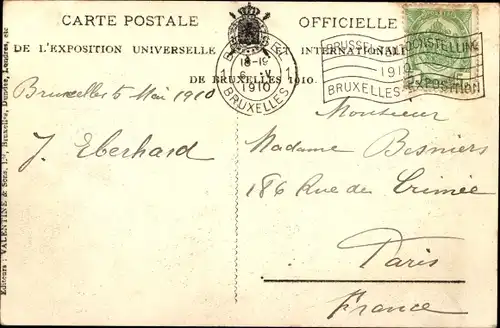 CARTE POSTALE OFFICIELLE
DE L'EXPOSITION UNIVERSELLE ET INTERNATIONALE
DE BRUXELLES 1910.
BRUXELLES
18-19
6 V
1910
BRUXELLES
BRUSSEL TENTOONSTELLING
1910
BRUXELLES EXPOSITION
Bruxelles 5 Mai 1910
J. Eberhard
Monsieur
Madame Besniers
186 Rue de Crimée
Paris
France
Editeurs: VALENTINE & Sons, Ld, Bruxelles, Dundee, Londres, etc